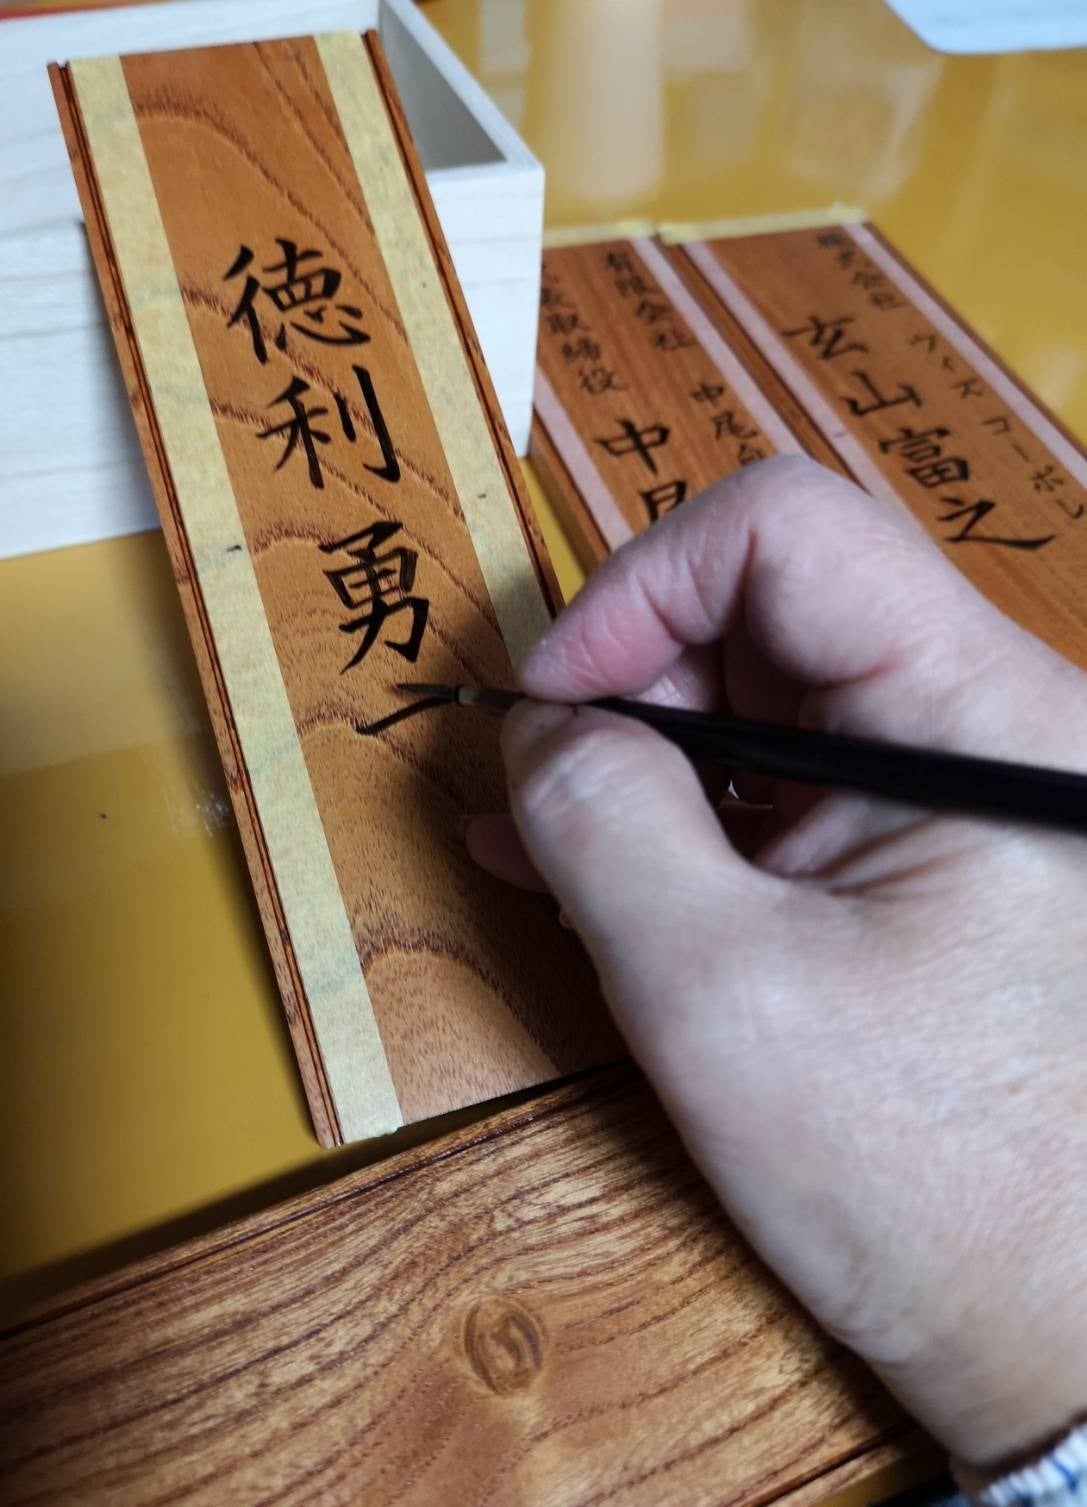 徳利勇一
有限会社 中尾
表取締役
中
株式会社 ウィズコーポレ
玄山富之